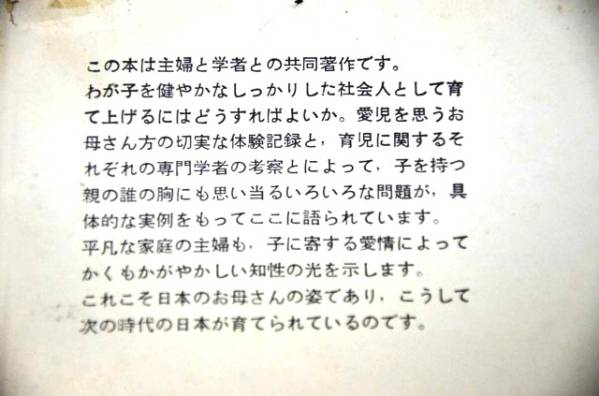 この本は主婦と学者との共同著作です。
わが子を健やかなしっかりした社会人として育
て上げるにはどうすればよいか。愛児を思うお
母さん方の切実な体験記録と，育児に関するそ
れぞれの専門学者の考察とによって，子を持つ
親の誰の胸にも思い当るいろいろな問題が，具
体的な実例をもってここに語られています。
平凡な家庭の主婦も，子に寄する愛情によって
かくもかがやかしい知性の光を示します。
これこそ日本のお母さんの姿であり，こうして
次の時代の日本が育てられているのです。